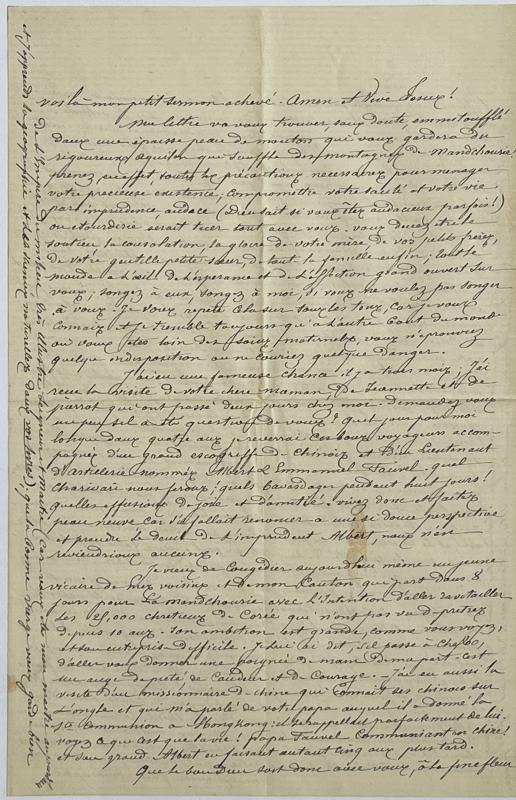 voilà mon petit sermon achevé. Amen et Vive Jésus!
Ma lettre va vous trouver, sans doute, emmitoufflé
dans une épaisse peau de mouton qui vous gardera du
rigoureux aquilon qui souffle des montagnes de Mandchourie!
prenez en effet toutes les précautions nécessaires pour ménager
votre précieuse existence; compromettre votre santé et votre vie
par imprudence, audace (Dieu sait si vous êtes audacieux parfois!)
ou étourderie serait tuer tout avec vous. vous devez être le
soutien la consolation, la gloire de votre mère, de vos petits frères,
de votre gentille petite sœur, de tout la famille enfin; tout le
monde a l'œil de l'espérance et de l'affection grand ouvert sur
vous; songez à eux, songez à moi, si vous ne voulez pas songer
à vous. Je vous répète cela sur tous les tons, car je vous
connais et je tremble toujours qu'à l'autre bout du monde
où vous êtes loin des soins fraternels, vous n'éprouviez
quelque indisposition ou ne couriez quelque danger.
J'ai eu une fameuse chance il y a trois mois; J'ai
reçu la visite de votre chère maman, de Jeannette et de
pierrot qui ont passé deux jours chez moi. demandez vous
un peu s'il a été question de vous! quel jour pour moi
lorsque dans quatre ans je reverrai ces bons voyageurs accom-
pagnés d'un grand escogriffe de chinois et d'un lieutenant
d'artillerie nommés Albert & Emmanuel Fauvel. quel
charivari nous ferons! quels bavardages pendant huit jours!
quelles effusions de joie et d'amitié! vivez donc et faites
peau neuve car s'il fallait renoncer à une si douce perspective
et prendre le deuil de l'imprudent Albert, nous n'en
reviendrions aucuns.
Je viens de congédier aujourd'hui même un jeune
vicaire de mes voisins et de mon canton qui part dans 8
jours pour la Mandchourie avec l'intention d'aller ravitailler
les 25,000 chrétiens de Corée qui n'ont pas vu de prêtres
depuis 10 ans. Son ambition est grande, comme vous voyez,
et son entreprise difficile. Je lui ai dit, s'il passe à Chefoo,
d'aller vous donner une poignée de main de ma part. c'est
un ange de piété de candeur et de courage. J'ai eu aussi la
visite d'un missionnaire de chine qui connaît ses chinois sur
l'ongle et qui m'a parlé de votre papa auquel il a donné la
communion à Hongkong: il se rappelle parfaitement de lui.
voyez ce que c'est que la vie! papa Fauvel communiant en chine!
et son grand Albert en faisant autant cinq ans plus tard.
Que le bon Dieu soit donc avec vous, ô la fine fleur
de l'Empire du milieu, très illustre Seigneur et